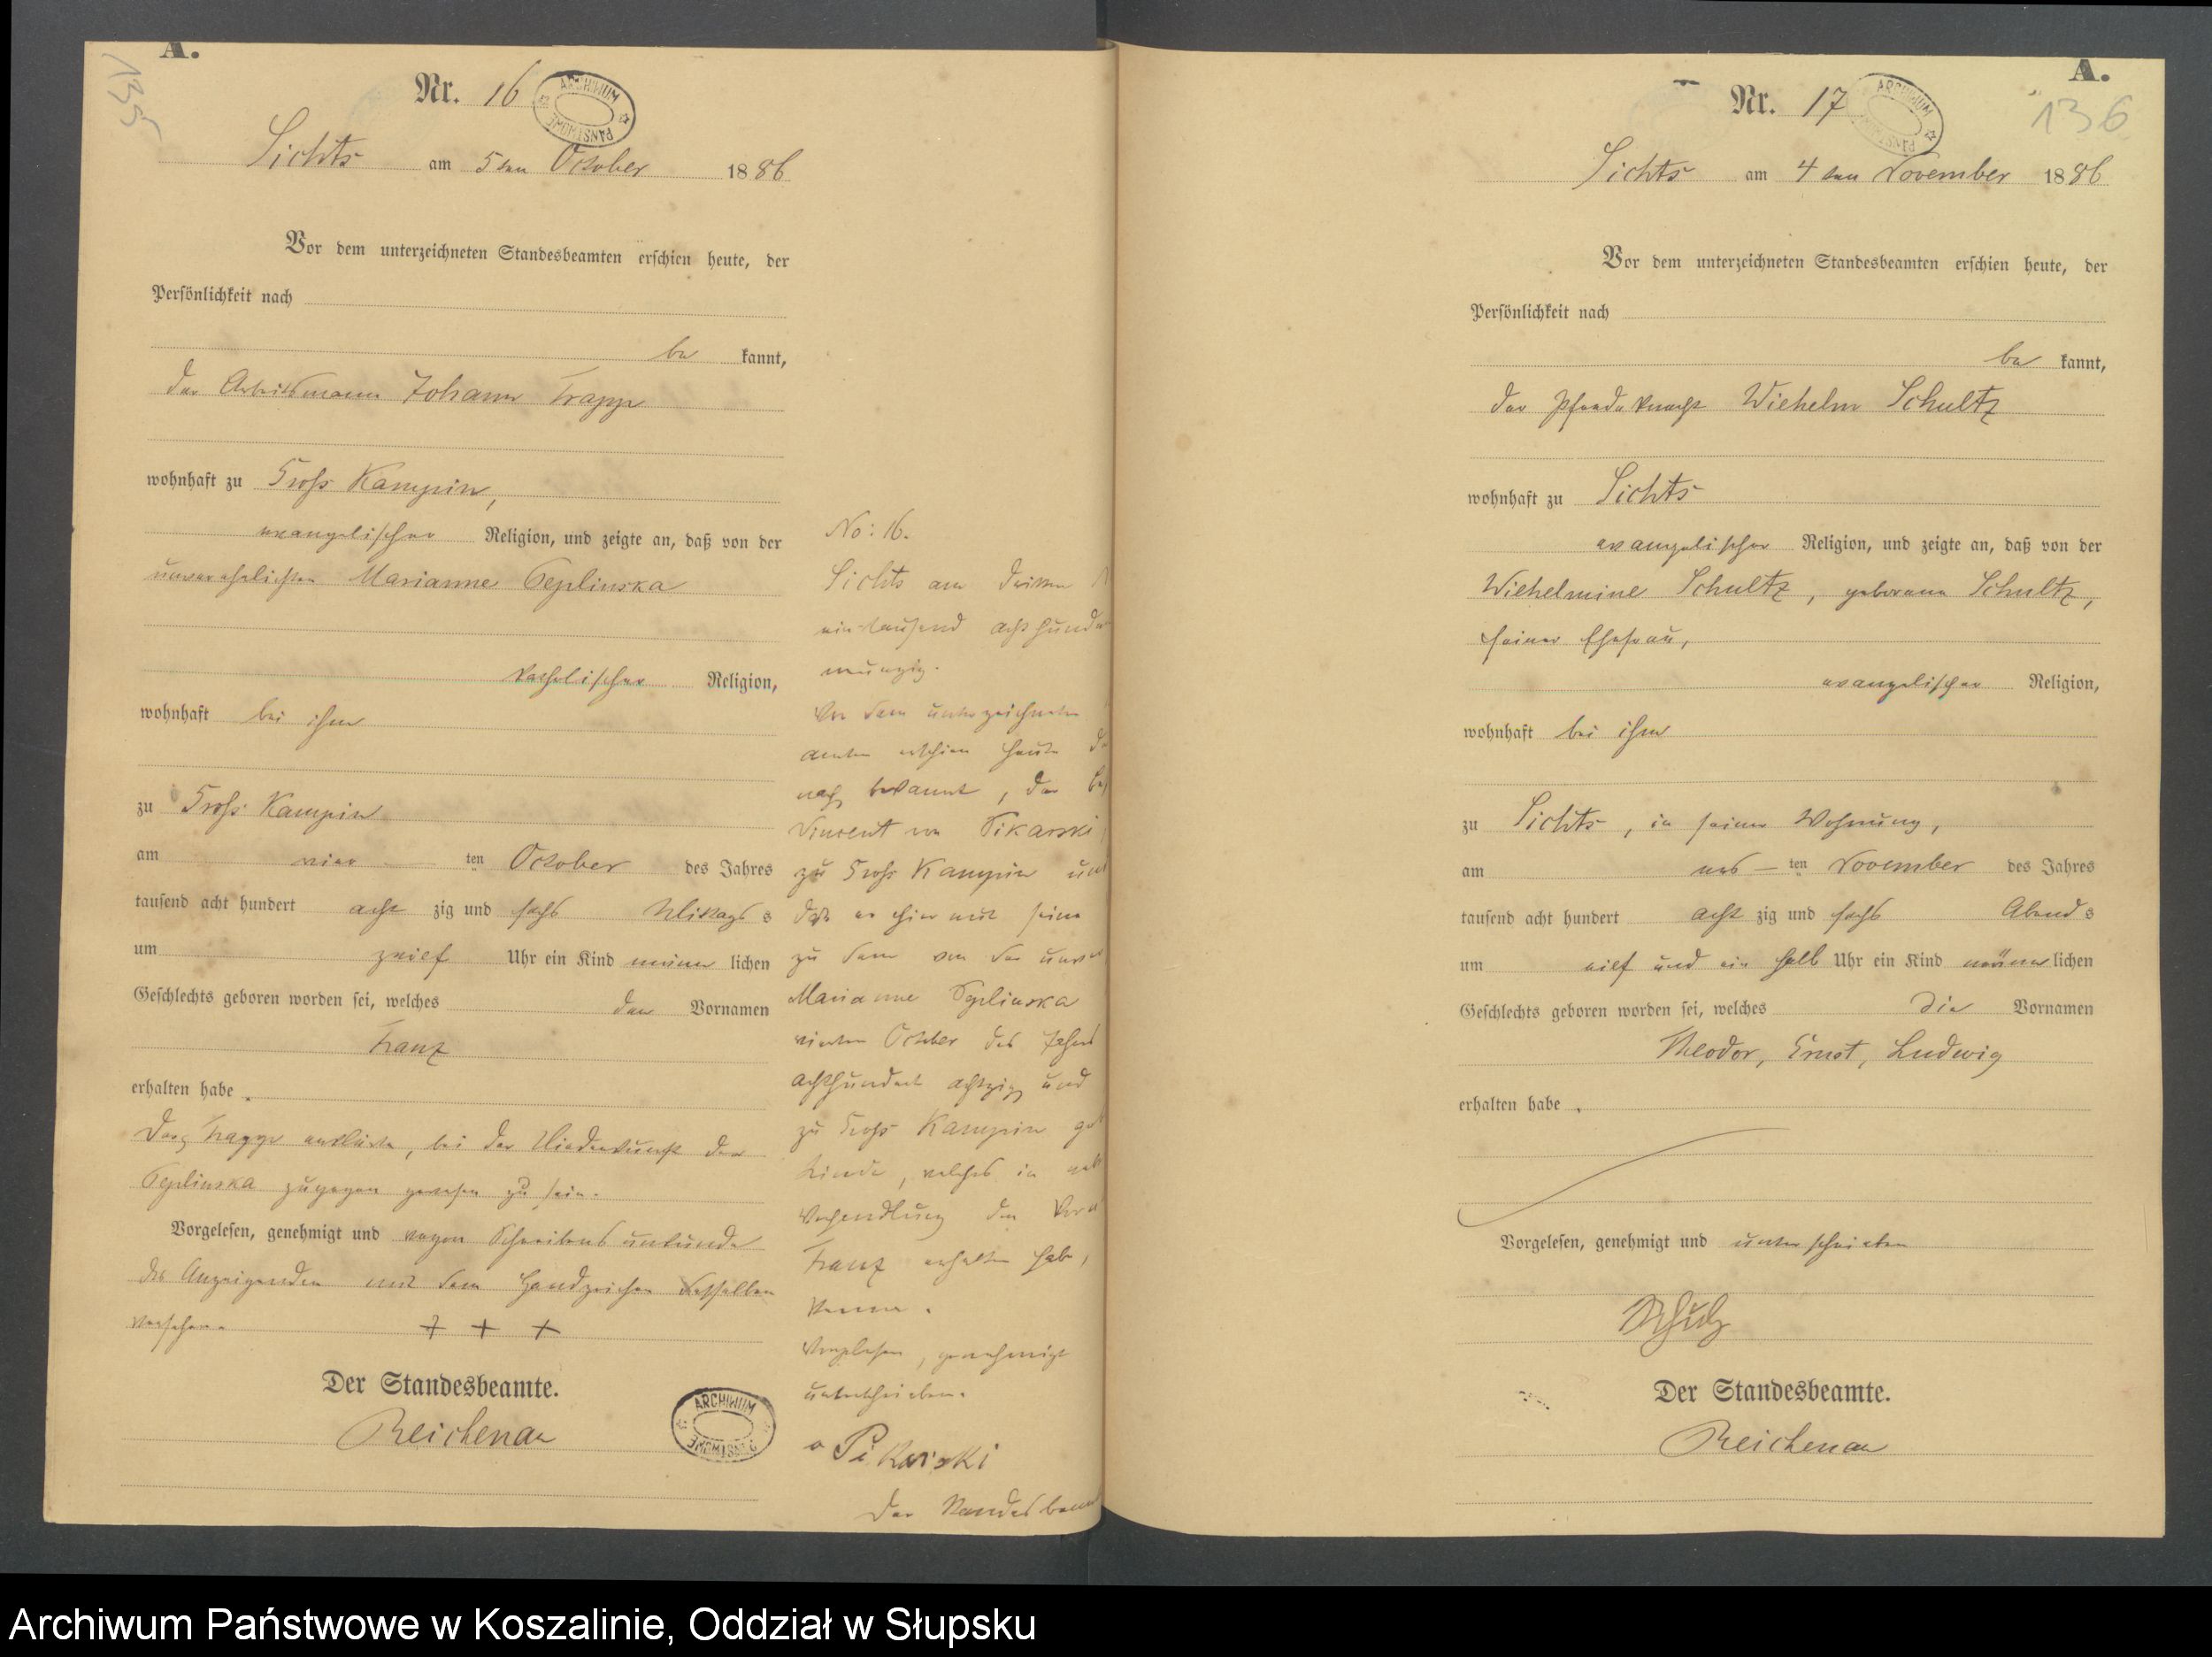 A.
135
Nr. 16
ARCHIWUM PAŃSTWOWE
Lichts am 5ten October 1886
Vor dem unterzeichneten Standesbeamten erschien heute, der
Persönlichkeit nach
be kannt,
der Arbeitsmann Johann Trapp
wohnhaft zu Gross Kampin,
evangelischer Religion, und zeigte an, daß von der
unverehelichten Marianne Ceplinska
katholischer Religion,
wohnhaft bei ihm
zu Gross Kampin
am vier ten October des Jahres
tausend acht hundert acht zig und sechs Mittags
um zwölf Uhr ein Kind männ lichen
Geschlechts geboren worden sei, welches den Vornamen
Franz
erhalten habe.
Der Trapp erklärte, bei der Niederkunft der
Ceplinska zugegen gewesen zu sein.
Vorgelesen, genehmigt und wegen Schreibensunkunde
des Anzeigenden mit dem Handzeichen desselben
versehen.
+ + +
Der Standesbeamte.
Reichenau
ARCHIWUM PAŃSTWOWE
No: 16.
Lichts am dritten
eintausend achthunde
neunzig.
Vor dem unterzeichneten
amten erschien heute
nach bekannt, der
Vincent von Pikarski
zu Gross Kampin
daß er hier mit seine
zu dem von der unver
Marianne Ceplinska
vierten October des Jahres
achthundert achtzig und
zu Gross Kampin ge
Kinde, welches in
Verhandlung den Vor
Franz erhalten habe,
kenne.
Vorgelesen, genehmigt
unterschrieben.
Pikarski
Der Standesbeam
A.
136
Nr. 17
ARCHIWUM PAŃSTWOWE
Lichts am 4ten November 1886
Vor dem unterzeichneten Standesbeamten erschien heute, der
Persönlichkeit nach
be kannt,
der Pferdeknecht Wilhelm Schultz
wohnhaft zu Lichts
evangelischer Religion, und zeigte an, daß von der
Wilhelmine Schultz, geborene Schultz,
seiner Ehefrau,
evangelischer Religion,
wohnhaft bei ihm
zu Lichts, in seiner Wohnung,
am ers ten November des Jahres
tausend acht hundert acht zig und sechs Abends
um elf und ein halb Uhr ein Kind männ lichen
Geschlechts geboren worden sei, welches die Vornamen
Theodor, Ernst, Ludwig
erhalten habe.
Vorgelesen, genehmigt und unterschrieben
Der Standesbeamte.
Reichenau
Archiwum Państwowe w Koszalinie, Oddział w Słupsku